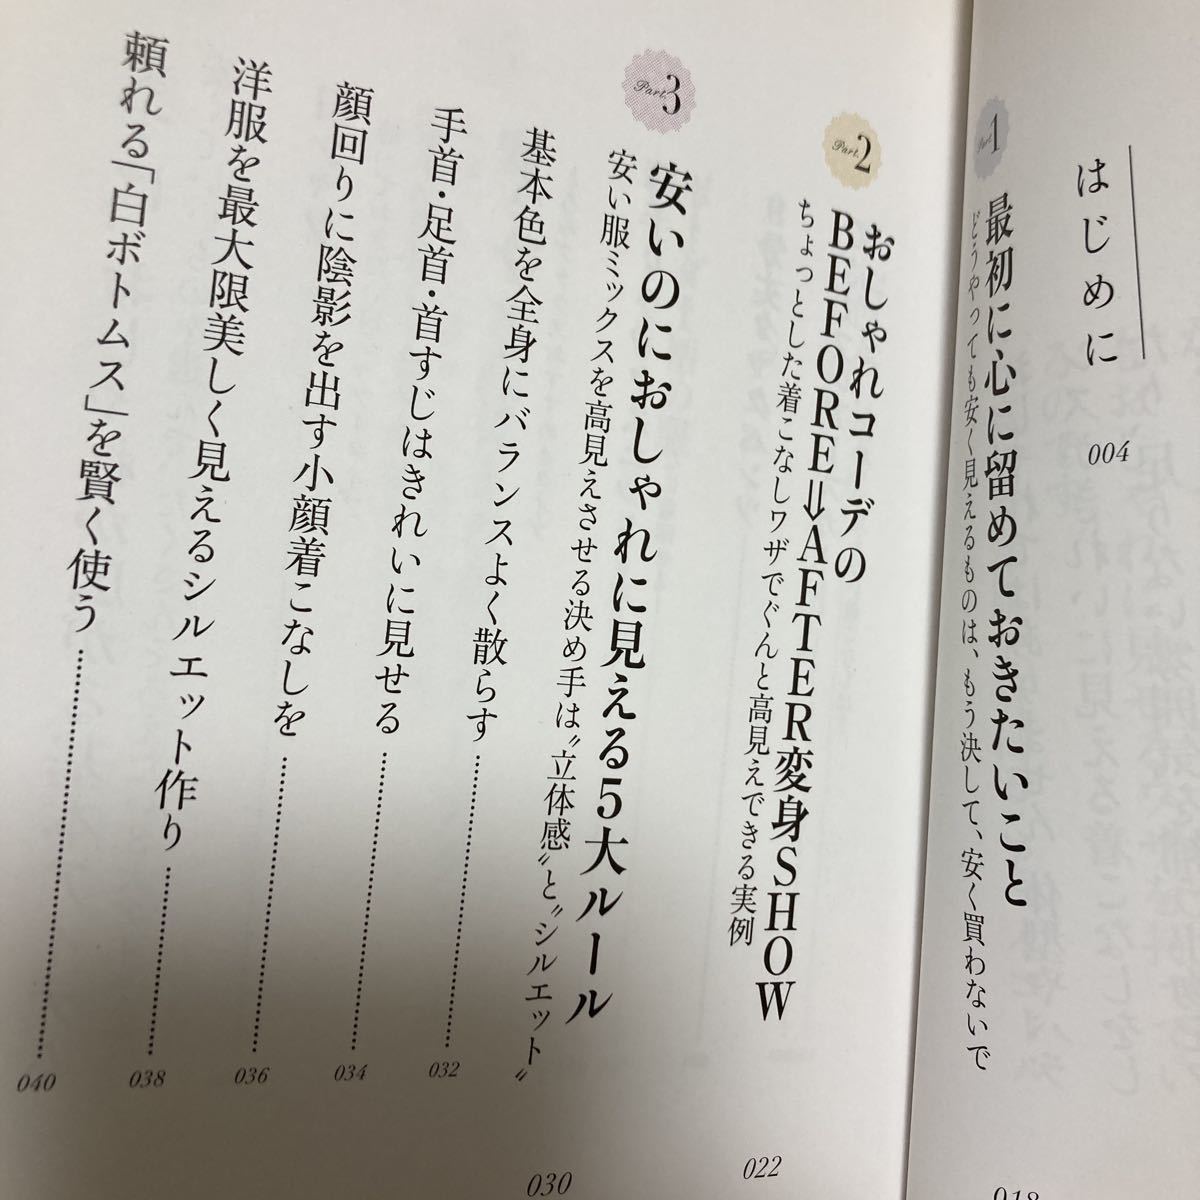 はじめに
004
Part.1
最初に心に留めておきたいこと
どうやっても安く見えるものは、もう決して、安く買わないで
018
Part.2
おしゃれコーデの
BEFORE⇒AFTER変身SHOW
ちょっとした着こなしワザでぐんと高見えできる実例
022
Part.3
安いのにおしゃれに見える5大ルール
安い服ミックスを高見えさせる決め手は〝立体感〟と〝シルエット〟
030
基本色を全身にバランスよく散らす
032
手首・足首・首すじはきれいに見せる
034
顔回りに陰影を出す小顔着こなしを
036
洋服を最大限美しく見えるシルエット作り
038
頼れる「白ボトムス」を賢く使う
040